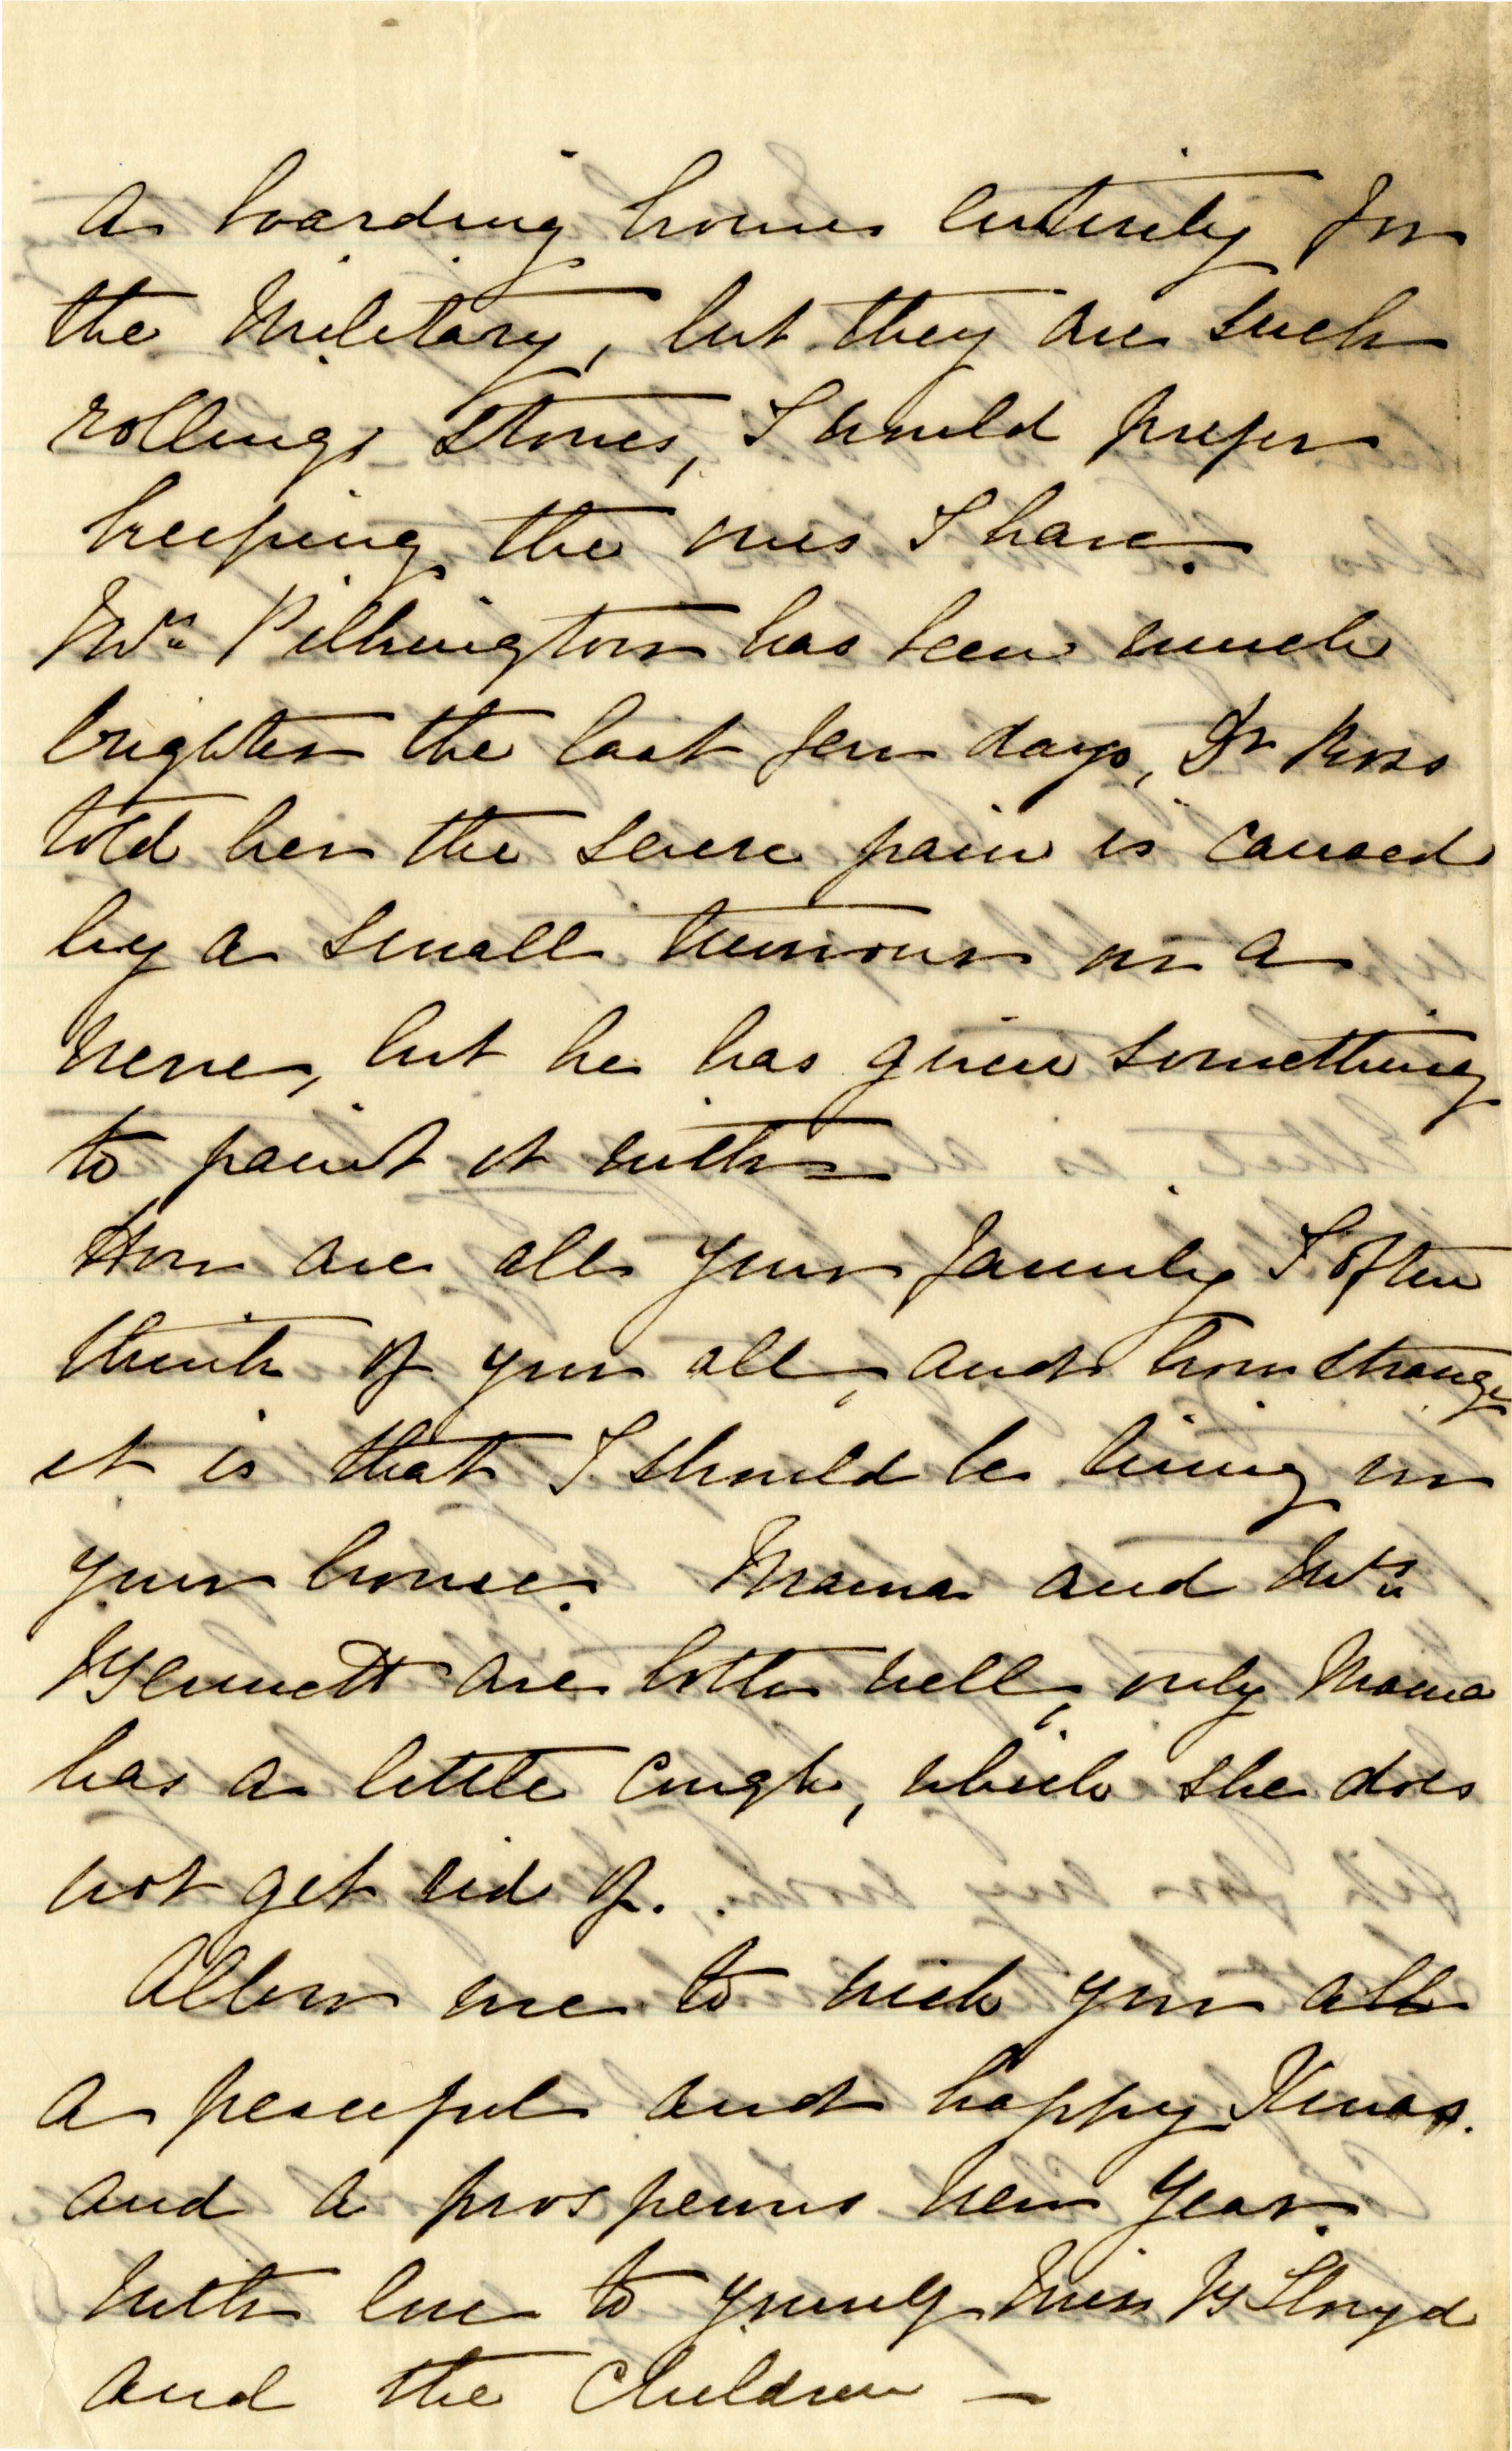 a boarding house entirely for
the Military, but they are such
rolling stones, I would prefer
keeping the ones I have.
Mrs Pilkington has been much
brighter the last few days, Dr Ross
told her the severe pain is caused
by a small tumour on a
nerve, but he has given something
to paint it with —
How are all your family I often
think of you all, and how strange
it is that I should be living in
your house. Mama and Mrs
Bennett are both well, only Mama
has a little cough, which she does
not get rid of.
Allow me to wish you all
a peaceful and happy Xmas.
and a prosperous New Year.
With love to yourself Miss B Lloyd
and the Children —